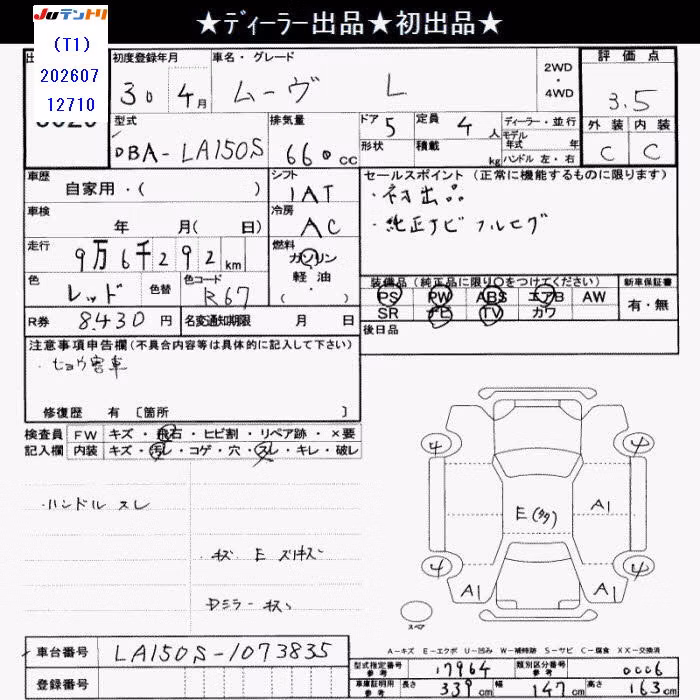 JUテントリ ★ディーラー出品★初出品★
(T1)
202607
12710
初度登録年月 車名・グレード 2WD ・ 4WD 評価点
30 4月 ムーヴ L 3.5
型式 排気量 ドア 5 定員 4人 ディーラー・並行 外装 内装
DBA-LA150S 660cc 形状 積載 kg モデル年式 年 ハンドル 左・右 C C
車歴 自家用・( ) シフト IAT セールスポイント(正常に機能するものに限ります)
・初出品
車検 年 月( 日) 冷房 AC ・純正ナビ フルセグ
走行 9万6千292km 燃料 ガソリン 軽油 ・( )
色 レッド 色替 色コード R67 装備品(純正品に限り○をつけてください) 新車保証書
PS PW ABS エアB AW 有・無
R券 8430円 名変通知期限 月 日 SR ナビ TV カワ
後日品
注意事項申告欄(不具合内容等は具体的に記入して下さい)
・ヒョウ害車
修復歴 有〔箇所 〕
検査員 FW キズ・飛石・ヒビ割・リペア跡・×要
記入欄 内装 キズ・汚レ・コゲ・穴・スレ・キレ・破レ
・ハンドル スレ
A1
E
・キズ E
A1 A1
スペア
A-キズ E-エクボ U-凹み W-補修跡 S-サビ C-腐食 XX-交換済
車台番号 LA150S-1073835 型式指定番号 参考 17964 類別区分番号 参考 0006
登録番号 車庫証明用 参考 長さ 339cm 幅 147cm 高さ 163cm